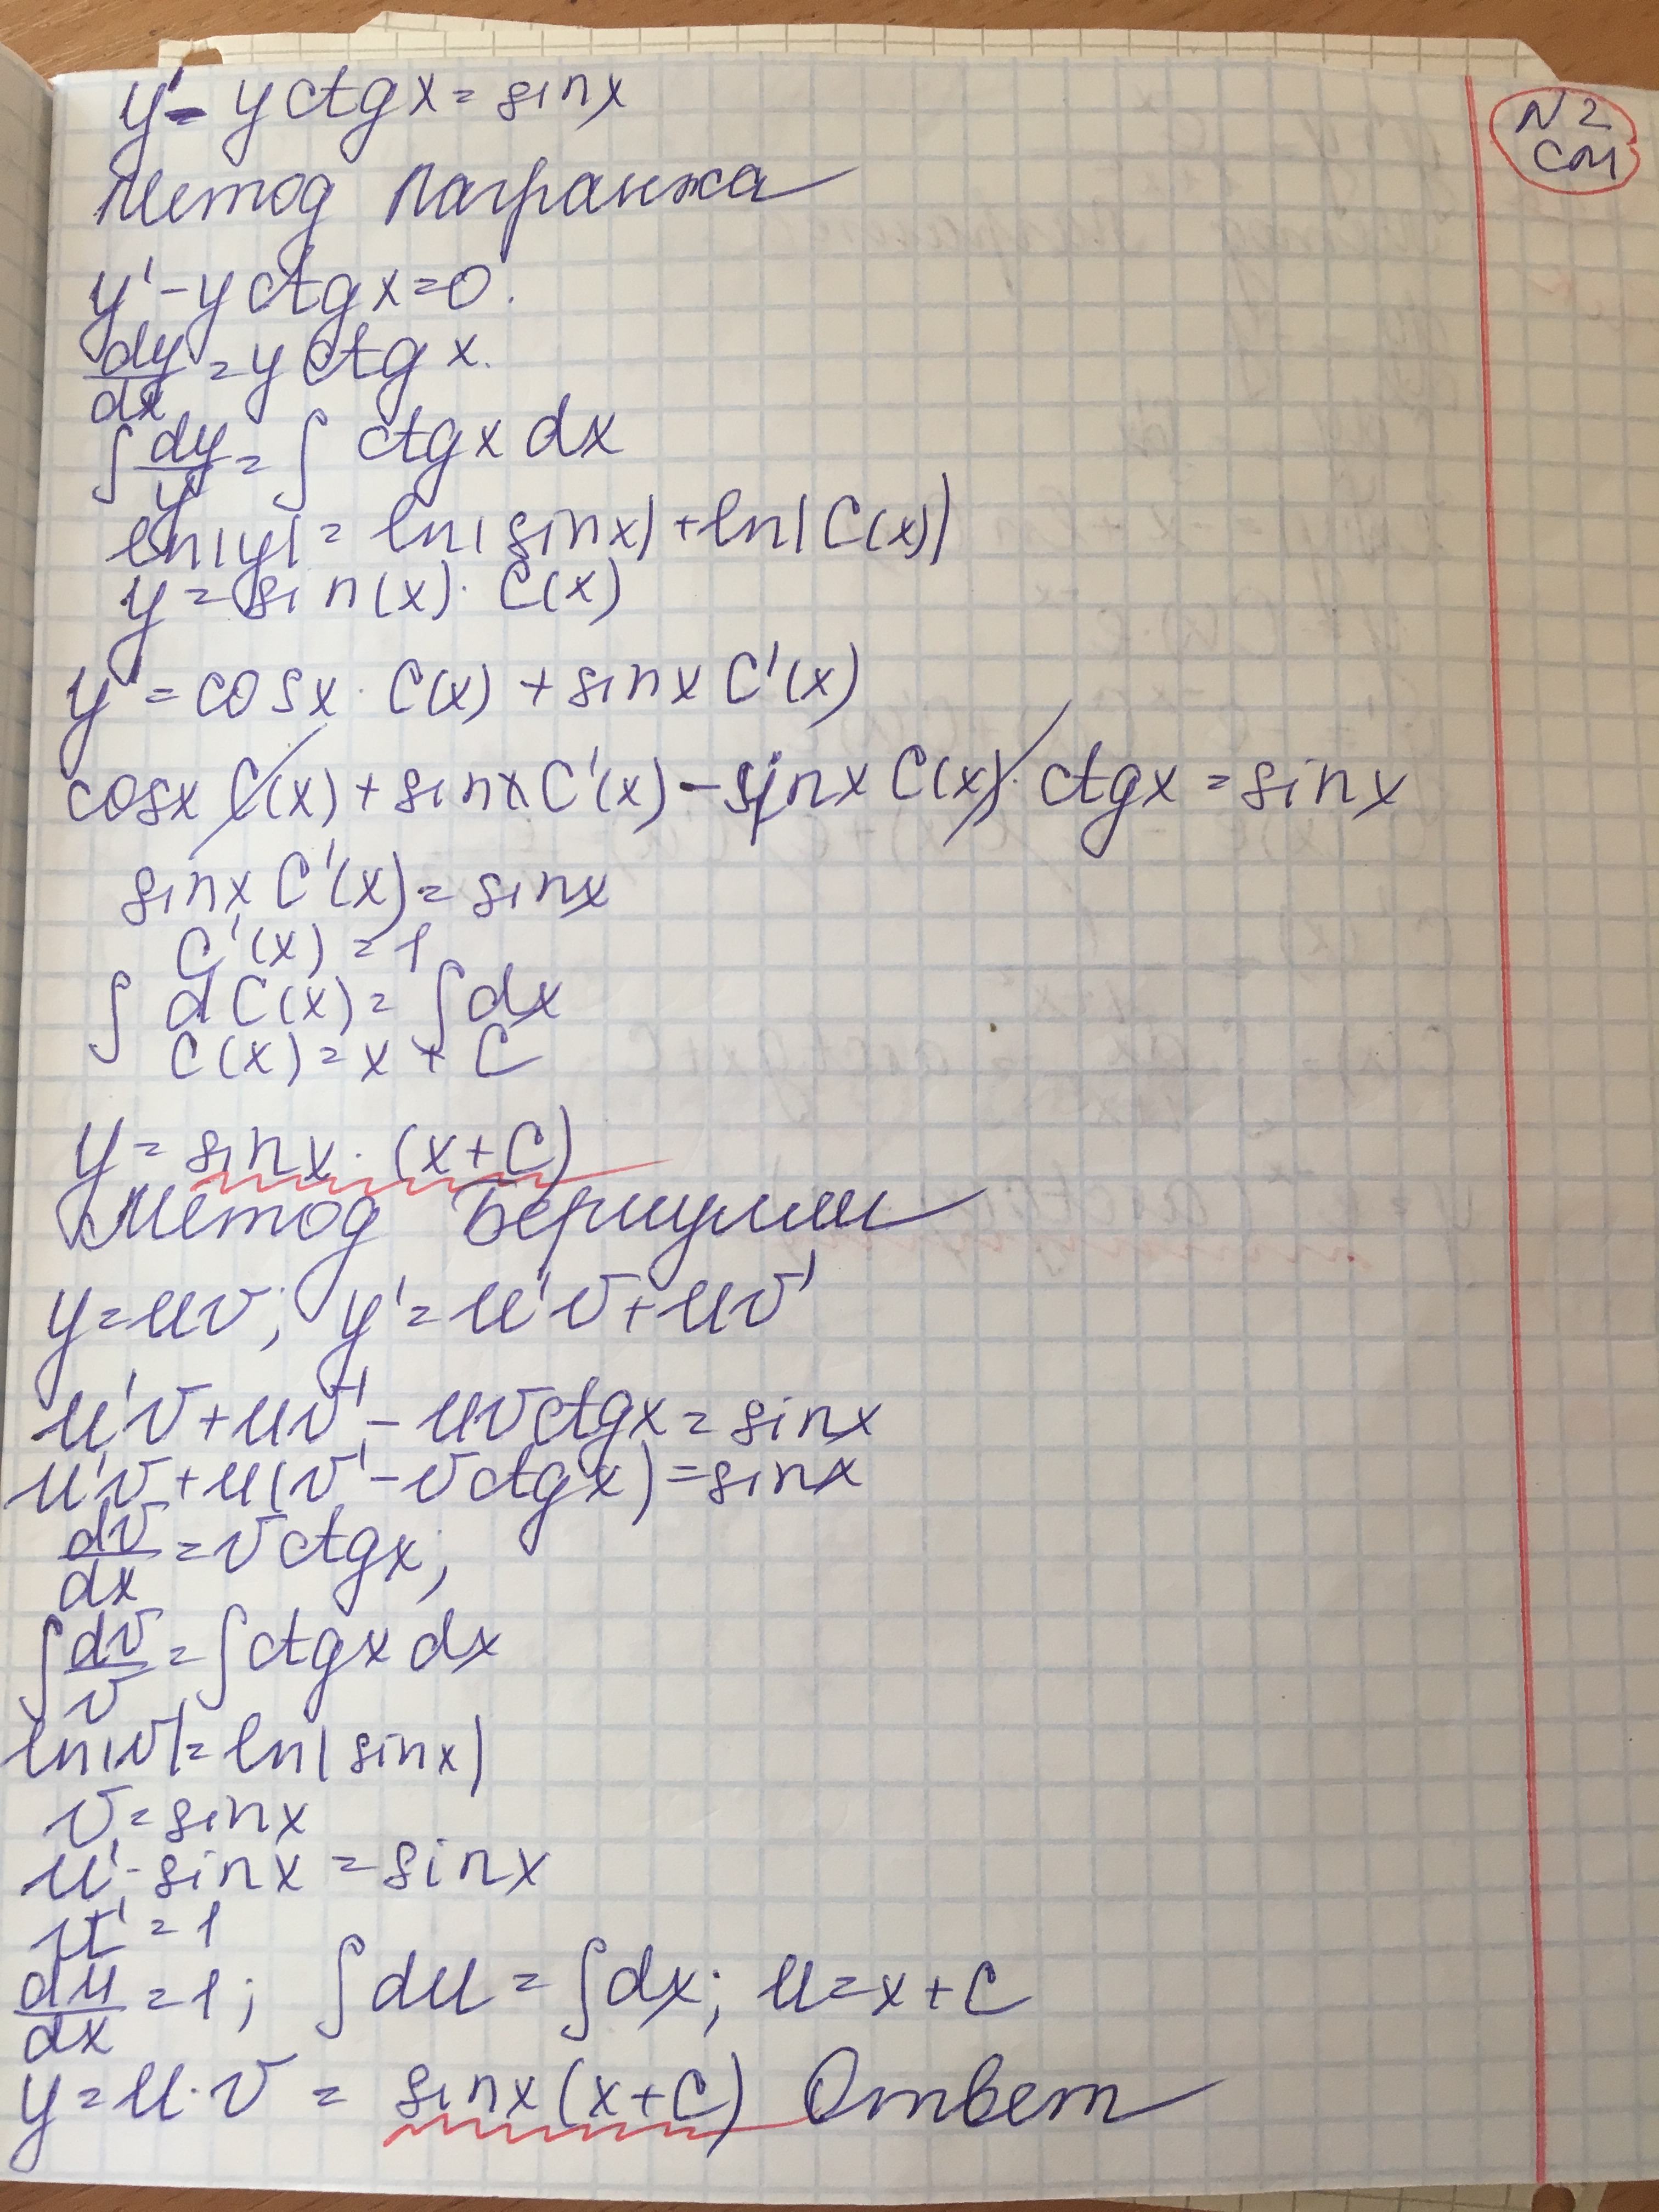 y' - y ctg x = sin x
N 2
СМ
Метод Лагранжа
y' - y ctg x = 0.
dy/dx = y ctg x.
∫ dy/y = ∫ ctg x dx
ln|y| = ln|sin x| + ln|C(x)|
y = sin(x) · C(x)
y' = cos x · C(x) + sin x C'(x)
cos x C(x) + sin x C'(x) - sin x C(x) · ctg x = sin x
sin x C'(x) = sin x
C'(x) = 1
∫ d C(x) = ∫ dx
C(x) = x + C
y = sin x · (x + C)
Метод Бернулли
y = uv; y' = u'v + uv'
u'v + uv' - uv ctg x = sin x
u'v + u(v' - v ctg x) = sin x
dv/dx = v ctg x;
∫ dv/v = ∫ ctg x dx
ln|v| = ln|sin x|
v = sin x
u' · sin x = sin x
u' = 1
du/dx = 1; ∫ du = ∫ dx; u = x + C
y = u · v = sin x (x + C) Ответ